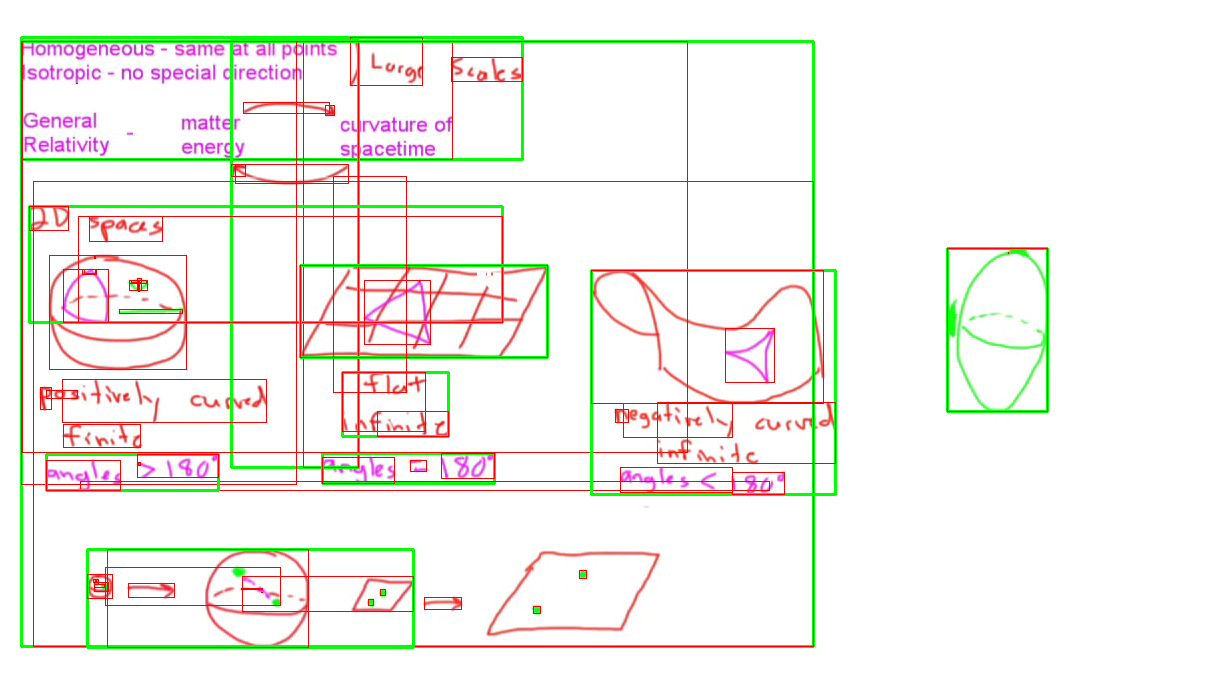 Homogeneous - same at all points
Isotropic - no special direction
Large Scales
General Relativity - matter energy curvature of spacetime
2D spaces
positively curved
finite
angles > 180°
flat
infinite
angles = 180°
negatively curved
infinite
angles < 180°